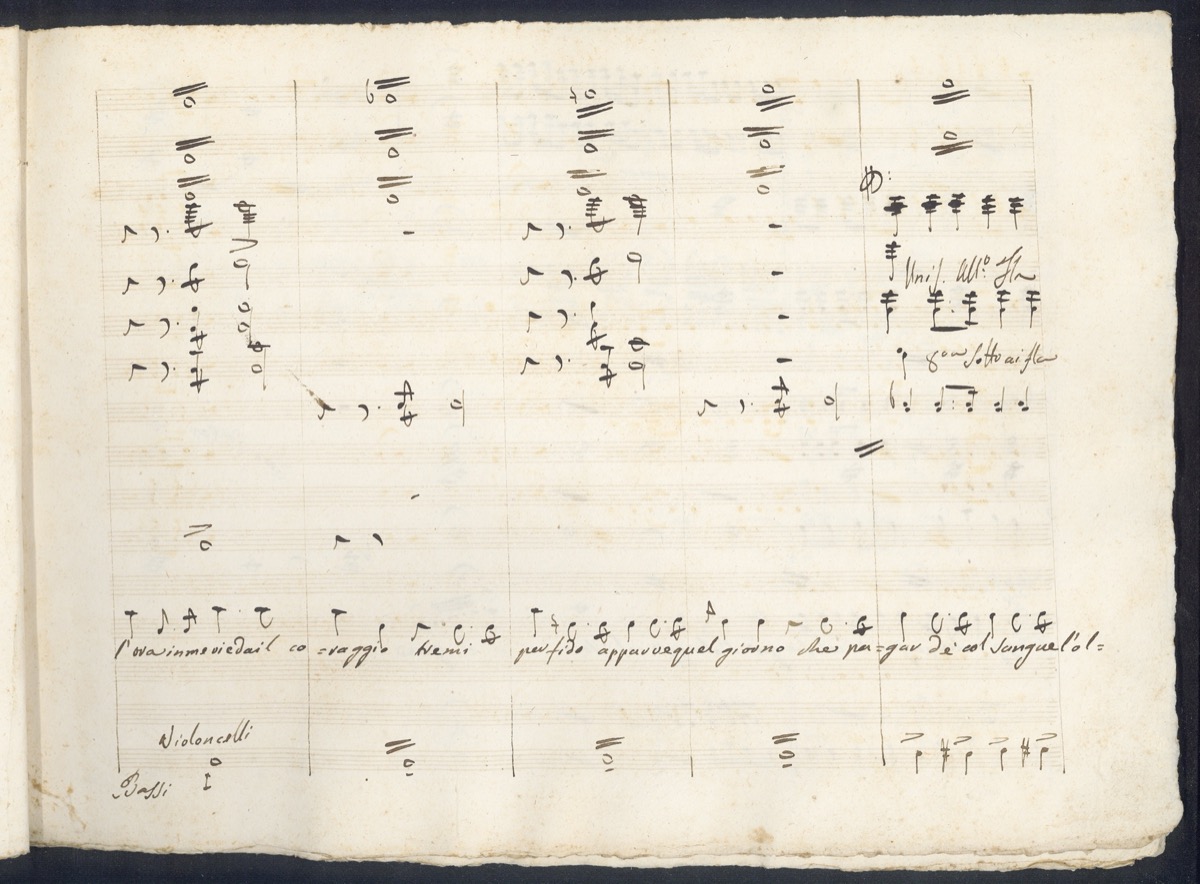 Unis. All.º fla
8.va sotto ai fla
l'ora in me rieda il co =raggio tremi perfido apparve quel giorno che pa=gar dè col Sangue l'ol=
Violoncelli
Bassi